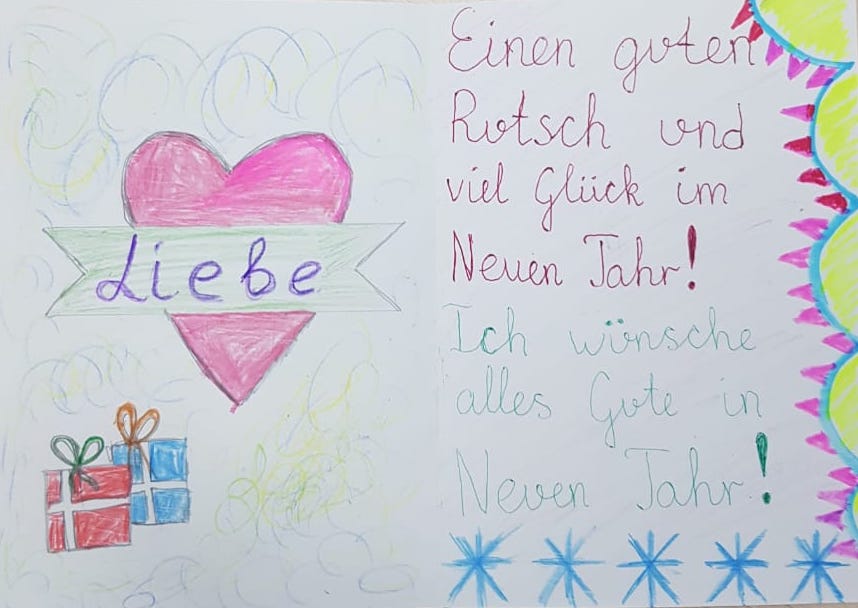 Liebe
Einen guten
Rutsch und
viel Glück im
Neuen Jahr!
Ich wünsche
alles Gute in
Neuen Jahr!